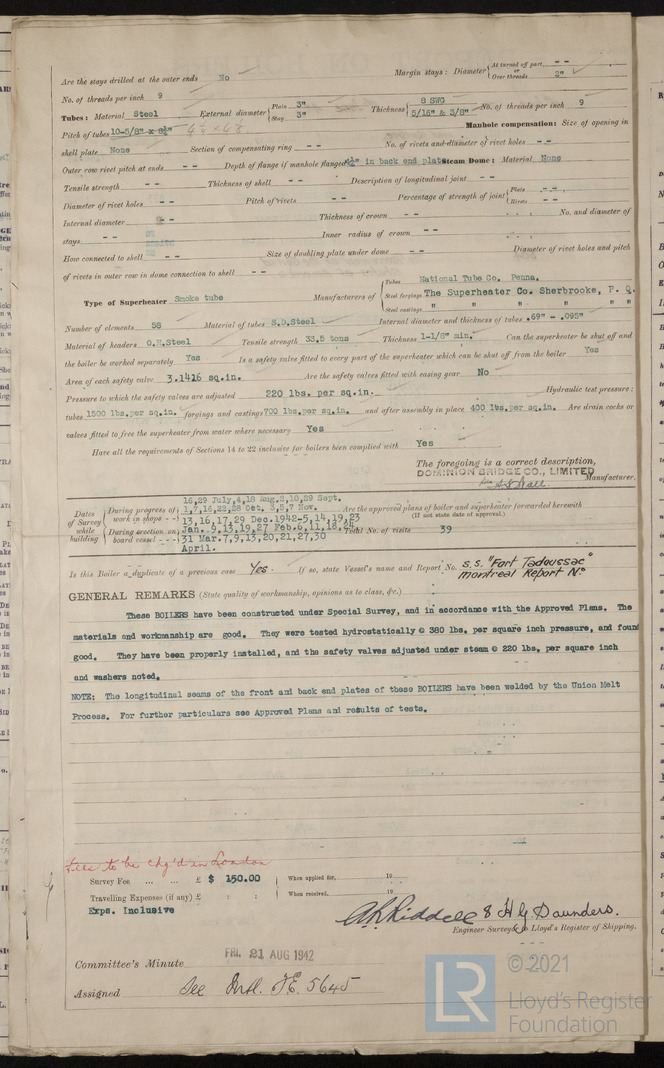 Are the stays drilled at the outer ends No Margin stays: Diameter { At turned off part, - - or Over threads 2"
No. of threads per inch 9
Tubes: Material Steel External diameter { Plain 3" Stay 3" Thickness { 8 SWG 5/16" & 3/8" No. of threads per inch 9
Pitch of tubes 10-5/8" x Manhole compensation: Size of opening in
shell plate None Section of compensating ring - - No. of rivets and diameter of rivet holes - -
Outer row rivet pitch at ends - - Depth of flange if manhole flanged in back end plate Steam Dome: Material None
Tensile strength - - Thickness of shell - - Description of longitudinal joint - -
Diameter of rivet holes - - Pitch of rivets - - Percentage of strength of joint { Plate - - Rivets - -
Internal diameter - - Thickness of crown - - No. and diameter of
stays - - Inner radius of crown - -
How connected to shell - - Size of doubling plate under dome - - Diameter of rivet holes and pitch
of rivets in outer row in dome connection to shell - -
Type of Superheater Smoke tube Manufacturers of { Tubes National Tube Co. Penna.
Steel forgings The Superheater Co. Sherbrooke, P. Q.
Steel castings " " " " "
Number of elements 58 Material of tubes S.D.Steel Internal diameter and thickness of tubes .69" - .095"
Material of headers O.H.Steel Tensile strength 33.5 tons Thickness 1-1/8" min. Can the superheater be shut off and
the boiler be worked separately Yes Is a safety valve fitted to every part of the superheater which can be shut off from the boiler Yes
Area of each safety valve 3.1416 sq.in. Are the safety valves fitted with easing gear No
Pressure to which the safety valves are adjusted 220 lbs. per sq.in. Hydraulic test pressure:
tubes 1500 lbs.per sq.in. forgings and castings 700 lbs.per sq.in. and after assembly in place 400 lbs.per sq.in. Are drain cocks or
valves fitted to free the superheater from water where necessary Yes
Have all the requirements of Sections 14 to 22 inclusive for boilers been complied with Yes
The foregoing is a correct description,
DOMINION BRIDGE CO., LIMITED
Manufacturer.
Dates of Survey while building
During progress of work in shops - -
16,29 July,4,18 Aug.
1,7,16,22,28 Oct. 3,5,7 Nov.
Are the approved plans of boiler and superheater forwarded herewith
(If not state date of approval.)
During erection on board vessel - - -
13,16,17,29 Dec.1942-5,14,19,23
Jan. 9,13,19,27 Feb.6,11,18,24
31 Mar.7,9,13,20,21,27,30
April.
Total No. of visits 39
Is this Boiler a duplicate of a previous case Yes. If so, state Vessel's name and Report No. S.S. "Fort Tadoussac"
Montreal Report No
GENERAL REMARKS (State quality of workmanship, opinions as to class, &c.)
These BOILERS have been constructed under Special Survey, and in accordance with the Approved Plans. The
materials and workmanship are good. They were tested hydrostatically @ 380 lbs. per square inch pressure, and found
good. They have been properly installed, and the safety valves adjusted under steam @ 220 lbs. per square inch
and washers noted.
NOTE: The longitudinal seams of the front and back end plates of these BOILERS have been welded by the Union Melt
Process. For further particulars see Approved Plans and results of tests.
Fees to be chg'd in London
Survey Fee ... ... £ $ 150.00 When applied for, 19
Travelling Expenses (if any) £ : : When received, 19
Exps. Inclusive
A. Riddell & H G Saunders.
Engineer Surveyor to Lloyd's Register of Shipping.
Committee's Minute FRI. 21 AUG 1942
Assigned See Mtl. F.E. 5645
© 2021
LR
Lloyd's Register
Foundation